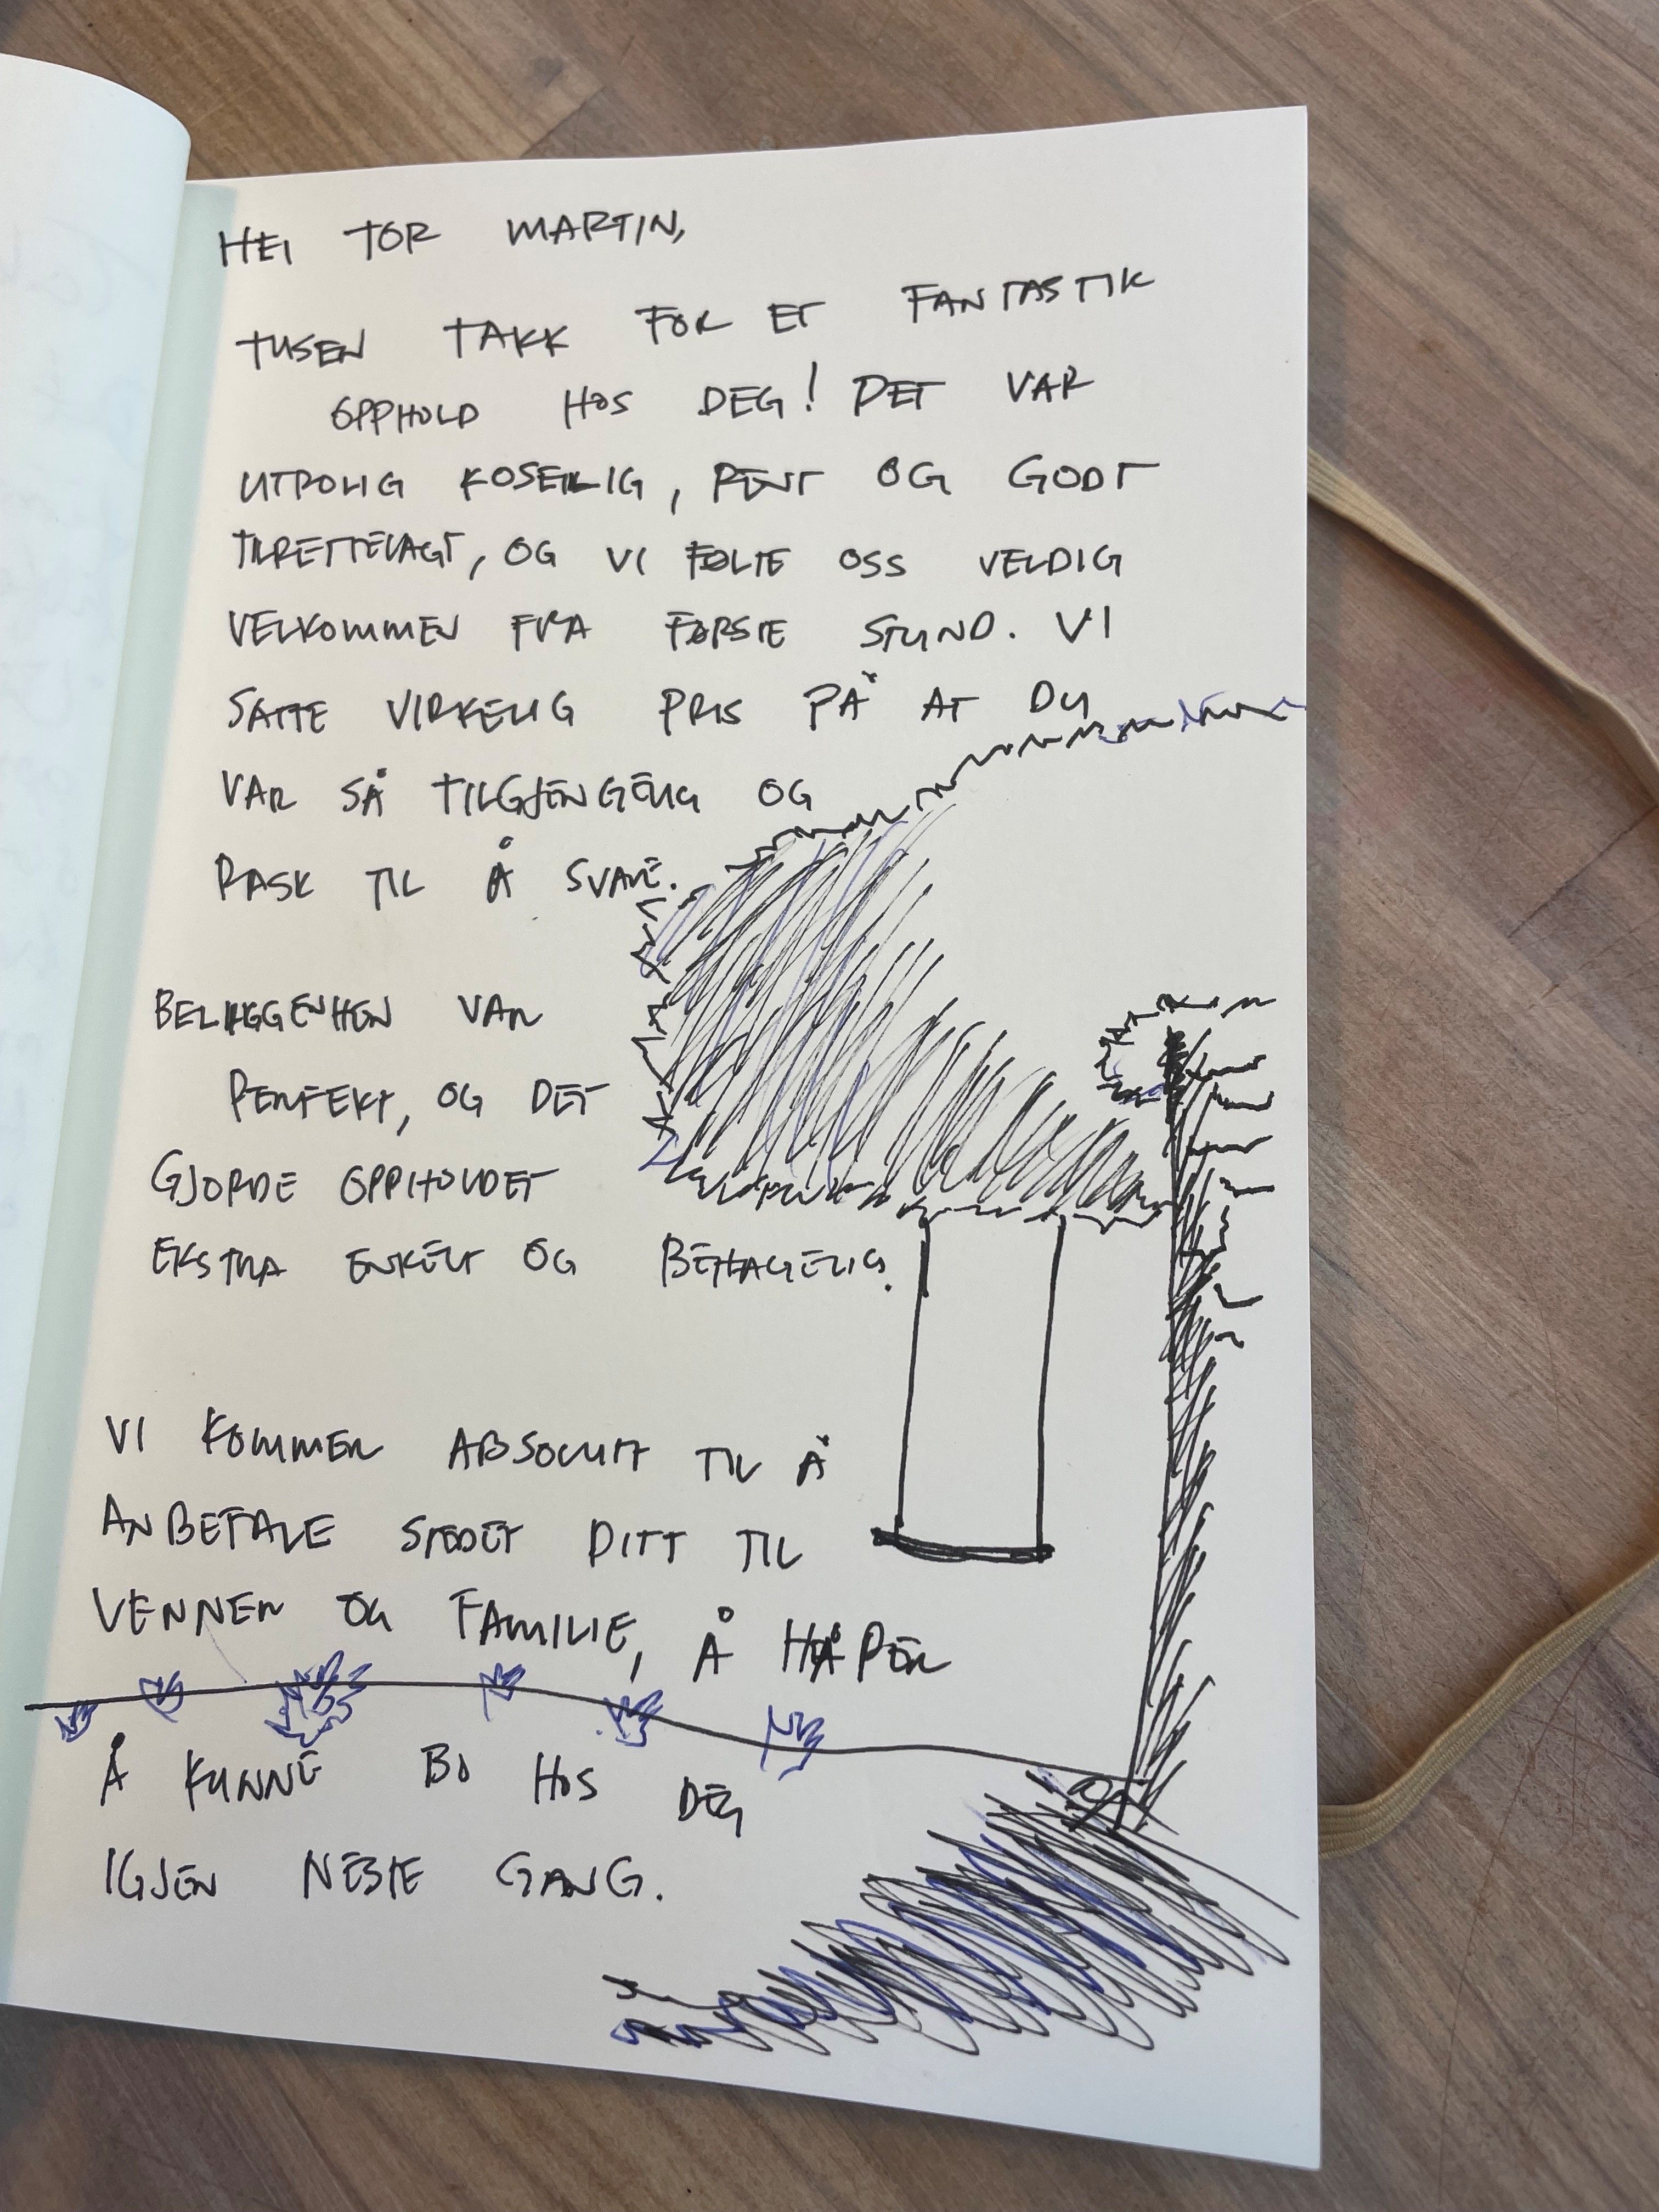 HEI TOR MARTIN,
TUSEN TAKK FOR ET FANTASTIK
OPPHOLD HOS DEG! DET VAR
UTROLIG KOSELIG, RENT OG GODT
TILRETTELAGT, OG VI FØLTE OSS VELDIG
VELKOMMEN FRA FØRSTE STUND. VI
SATTE VIRKELIG PRIS PÅ AT DU
VAR SÅ TILGJENGELIG OG
RASK TIL Å SVARE.
BELIGGENHEN VAR
PERFEKT, OG DET
GJORDE OPPHOLDET
EKSTRA ENKELT OG BEHAGELIG.
VI KOMMER ABSOLUTT TIL Å
ANBEFALE STEDET DITT TIL
VENNER OG FAMILIE, Å HÅPER
Å KUNNE BO HOS DEG
IGJEN NESTE GANG.